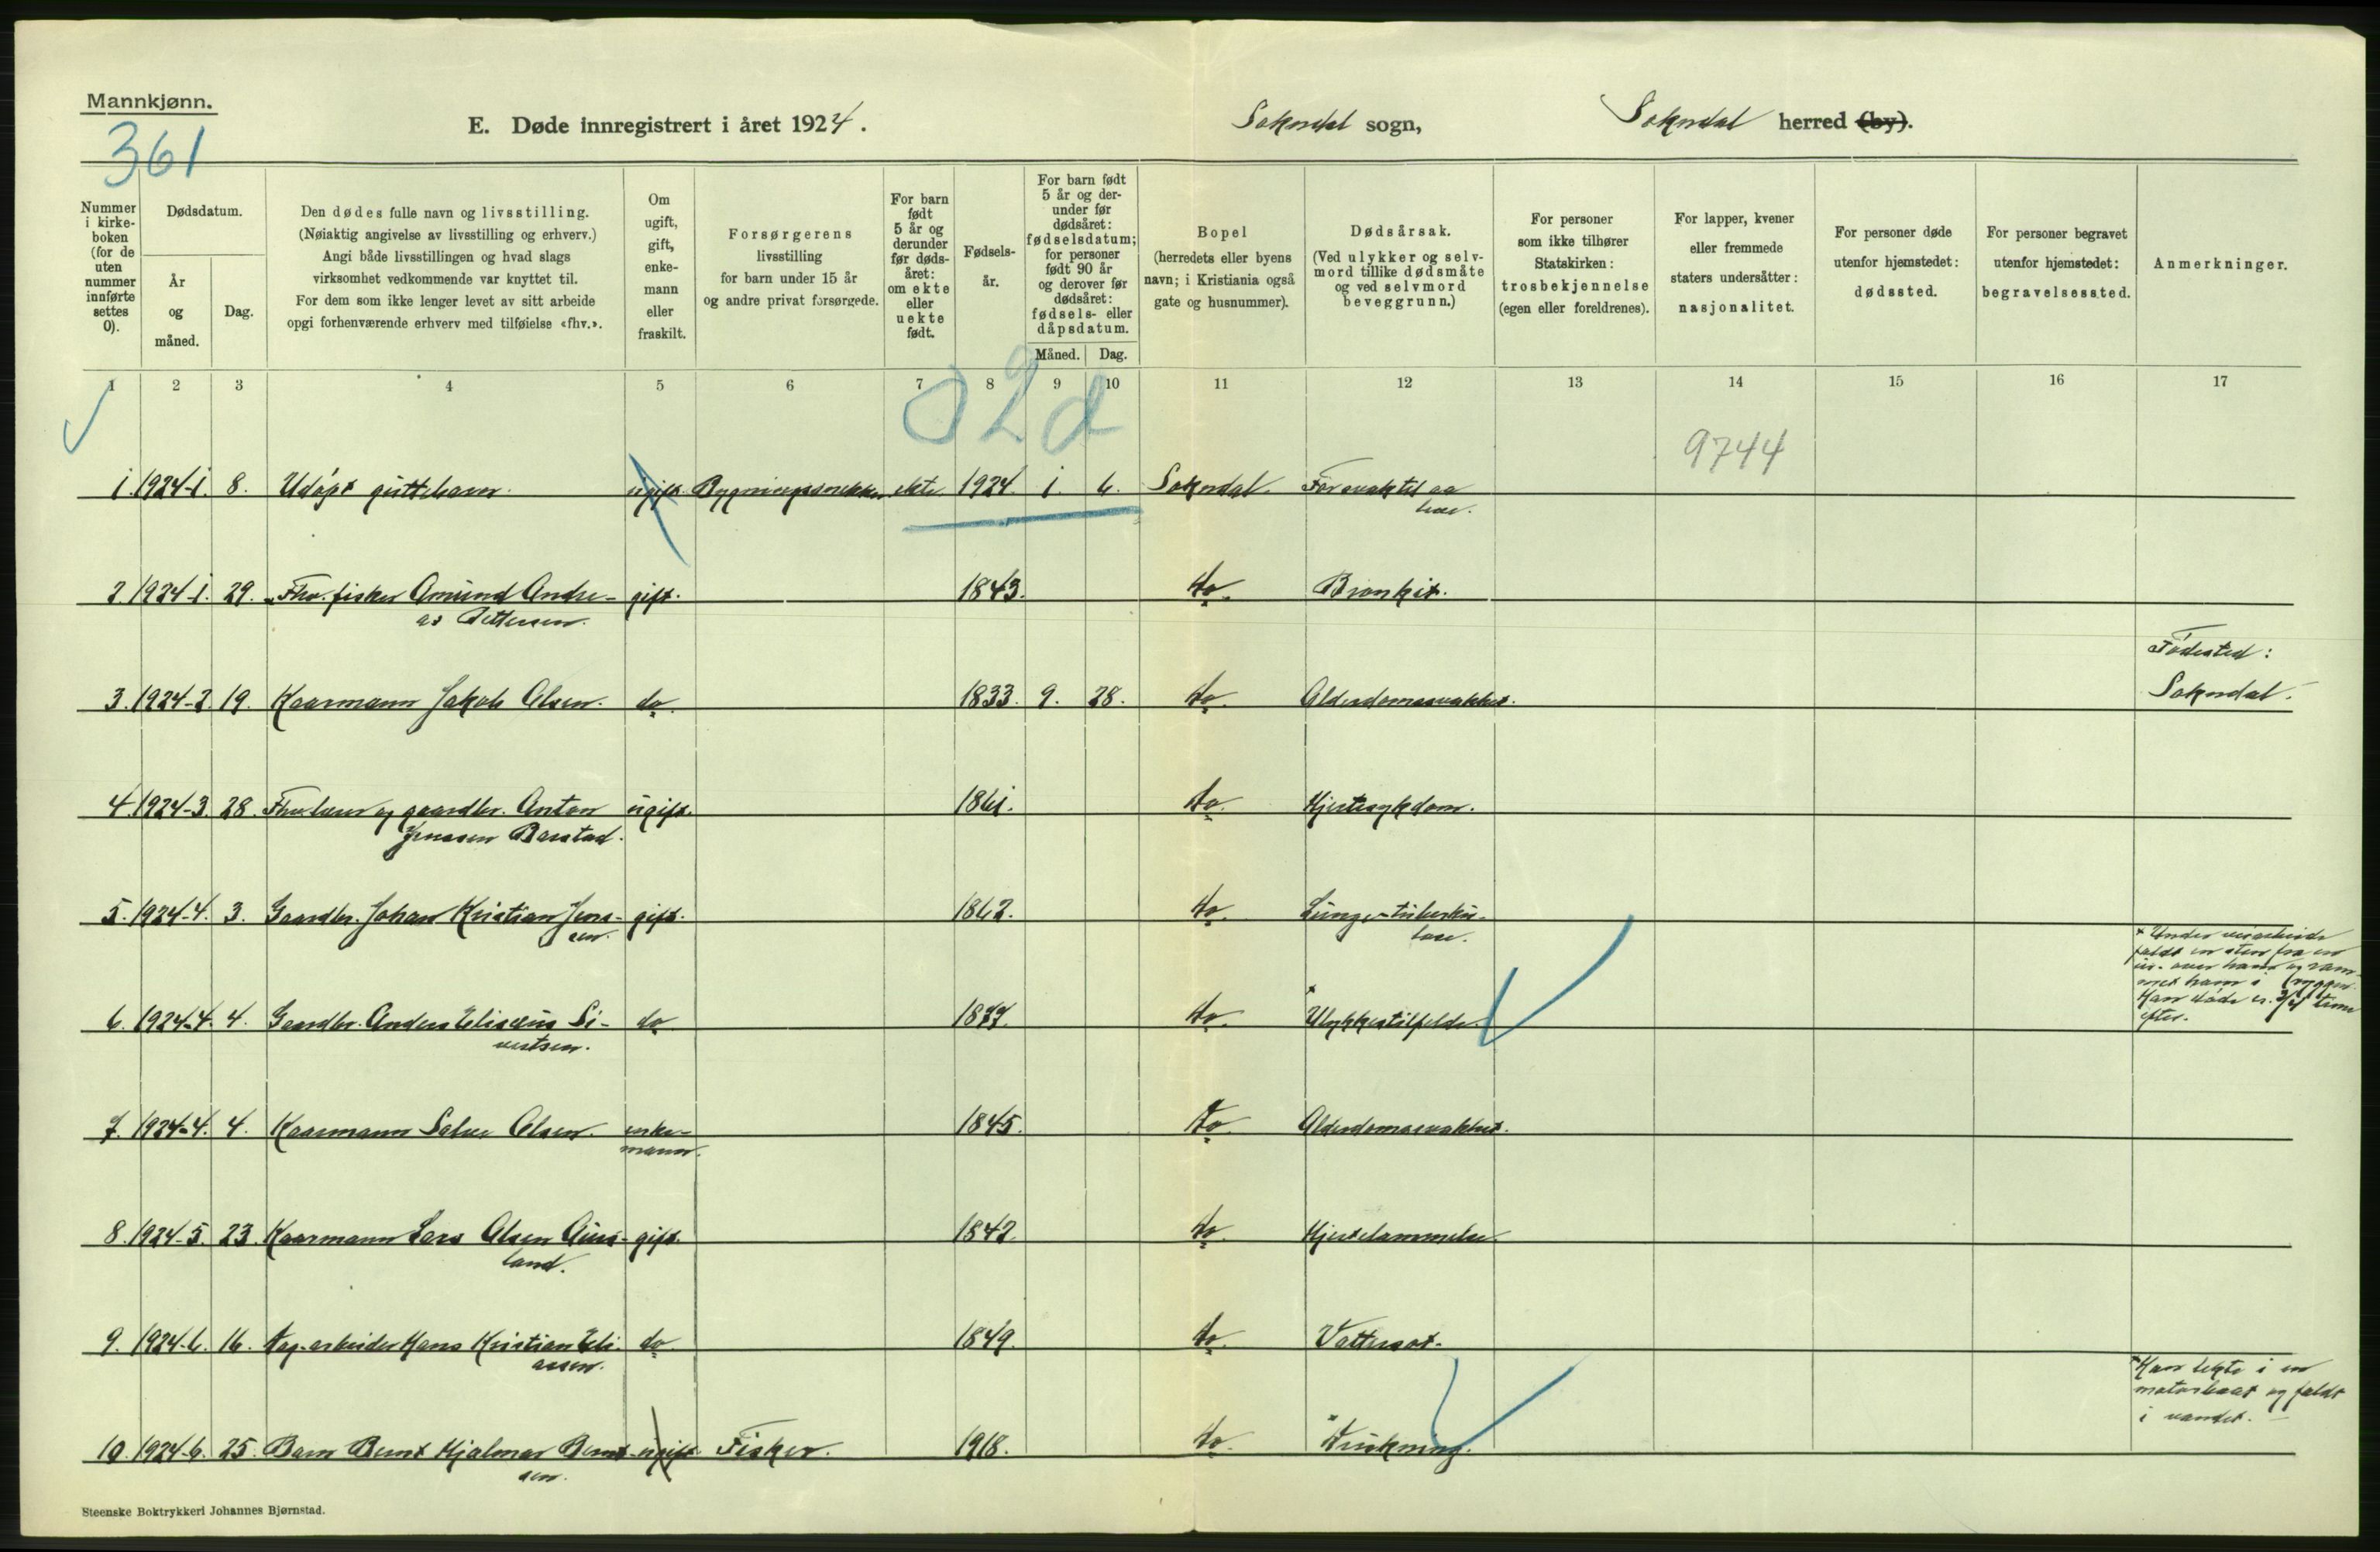 Mannkjønn.
361
E. Døde innregistrert i året 1924.
Sokndal sogn,
Sokndal herred (by).
Nummer i kirke-boken (for de uten nummer innførte settes 0).
Dødsdatum.
År og måned.
Dag.
Den dødes fulle navn og livsstilling.
(Nøiaktig angivelse av livsstilling og erhverv.)
Angi både livsstillingen og hvad slags
virksomhet vedkommende var knyttet til.
For dem som ikke lenger levet av sitt arbeide
opgi forhenværende erhverv med tilføielse «fhv.».
Om ugift, gift, enke-mann eller fraskilt.
Forsørgerens
livsstilling
for barn under 15 år
og andre privat forsørgede.
For barn født 5 år og derunder før døds-året: om ekte eller uekte født.
Fødsels-år.
For barn født 5 år og der-under før dødsåret: fødselsdatum; for personer født 90 år og derover før dødsåret: fødsels- eller dåpsdatum.
Måned. Dag.
Bopel
(herredets eller byens
navn; i Kristiania også
gate og husnummer).
Dødsårsak.
(Ved ulykker og selv-
mord tillike dødsmåte
og ved selvmord
beveggrunn.)
For personer
som ikke tilhører
Statskirken:
trosbekjennelse
(egen eller foreldrenes).
For lapper, kvener
eller fremmede
staters undersåtter:
nasjonalitet.
For personer døde
utenfor hjemstedet:
dødssted.
For personer begravet
utenfor hjemstedet:
begravelsessted.
Anmerkninger.
1 2 3 4 5 6 7 8 9 10 11 12 13 14 15 16 17
9744
1. 1924-1. 8. Udøpt guttebarn. ugift. Bygningssnekker ekte. 1924. 1. 6. Sokndal. For svak til aa
leve.
2. 1924-1. 29. Fhv. fisker Amund Andre- gift. 1843. do. Bronkit.
as Pettersen.
Fødested:
3. 1924-2. 19. Kaarmann Jakob Olsen. do. 1833. 9. 28. do. Alderdomssvakhet. Sokndal.
4. 1924-3. 28. Fhv. lærer og gaardbr. Anton ugift. 1861. do. Hjertesykdom.
Jonassen Barstad.
5. 1924-4. 3. Gaardbr. Johan Kristian Jens- gift. 1862. do. Lunge-tuberku-
sen. lose.
* Under veiarbeide
faldt en sten fra en
ur. over ham og ram-
met ham i ryggen.
Han døde ca. 3/4 time
efter.
6. 1924-4. 4. Gaardbr. Anders Eliseus Si- do. 1877. do. * Ulykkestilfelde.
vertsen.
7. 1924-4. 4. Kaarmann Salve Olsen. enke- 1845. do. Alderdomssvakhet.
mann.
8. 1924-5. 23. Kaarmann Lars Olsen Aus- gift. 1842. do. Hjertelammelse.
land.
9. 1924-6. 16. Dag-arbeider Hans Kristian Eli- do. 1849. do. Vattersot.
assen.
* Han lekte i en
motorbaat og faldt
i vandet.
10. 1924-6. 25. Barn Bernt Hjalmar Bernt- ugift. Fisker. 1918. do. * Drukning.
sen.
Steenske Boktrykkeri Johannes Bjørnstad.